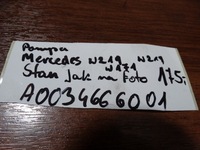 Pompa
Mercedes W219 W211
W171
Stan Jak na Foto 175,-
A0034666001